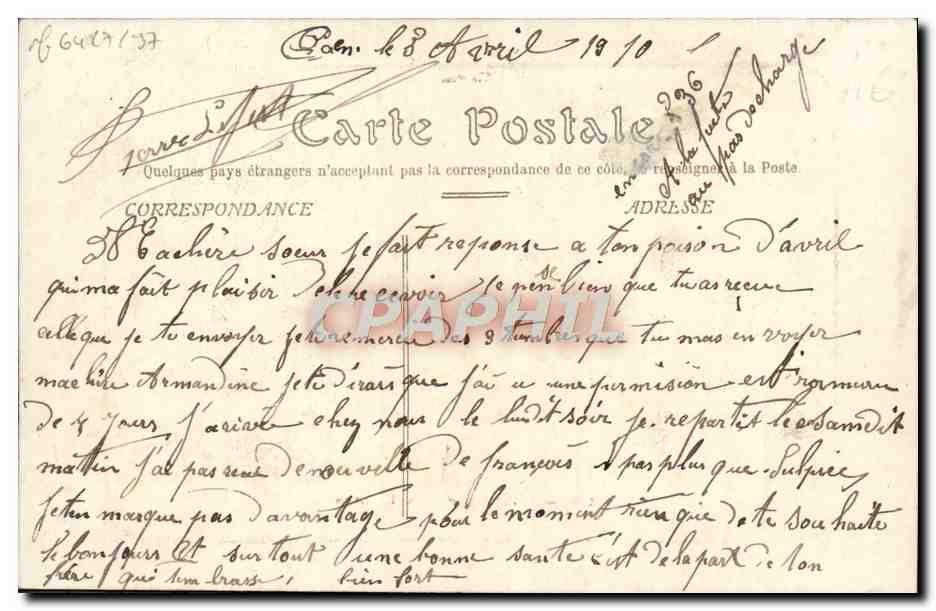 le 8 Avril 1910
Carte Postale
Quelques pays étrangers n'acceptant pas la correspondance de ce côté, se renseigner à la Poste
CORRESPONDANCE
ADRESSE
A la
au pas de charge
CPAPHIL
Ma chère soeur je fait reponse a ton poison d'avril
qui ma fait plaisir de le recevoir je pense bien que tu as reçue
celle que je tu envoyer je te remerci des 9 timbres que tu mas envoyer
ma chère Armandine je te dirais que j'ai u une permision
de 4 jours j'arive chez nous le lundit soir je repartit le samedit
matin j'ai pas reçue de nouvelle de françois pas plus que Sulpice
je ten marque pas d'avantage pour le moment rien que de te souhaite
le bonjours Et surtout une bonne santé c'est de la part de ton
frère qui tembrasse bien fort